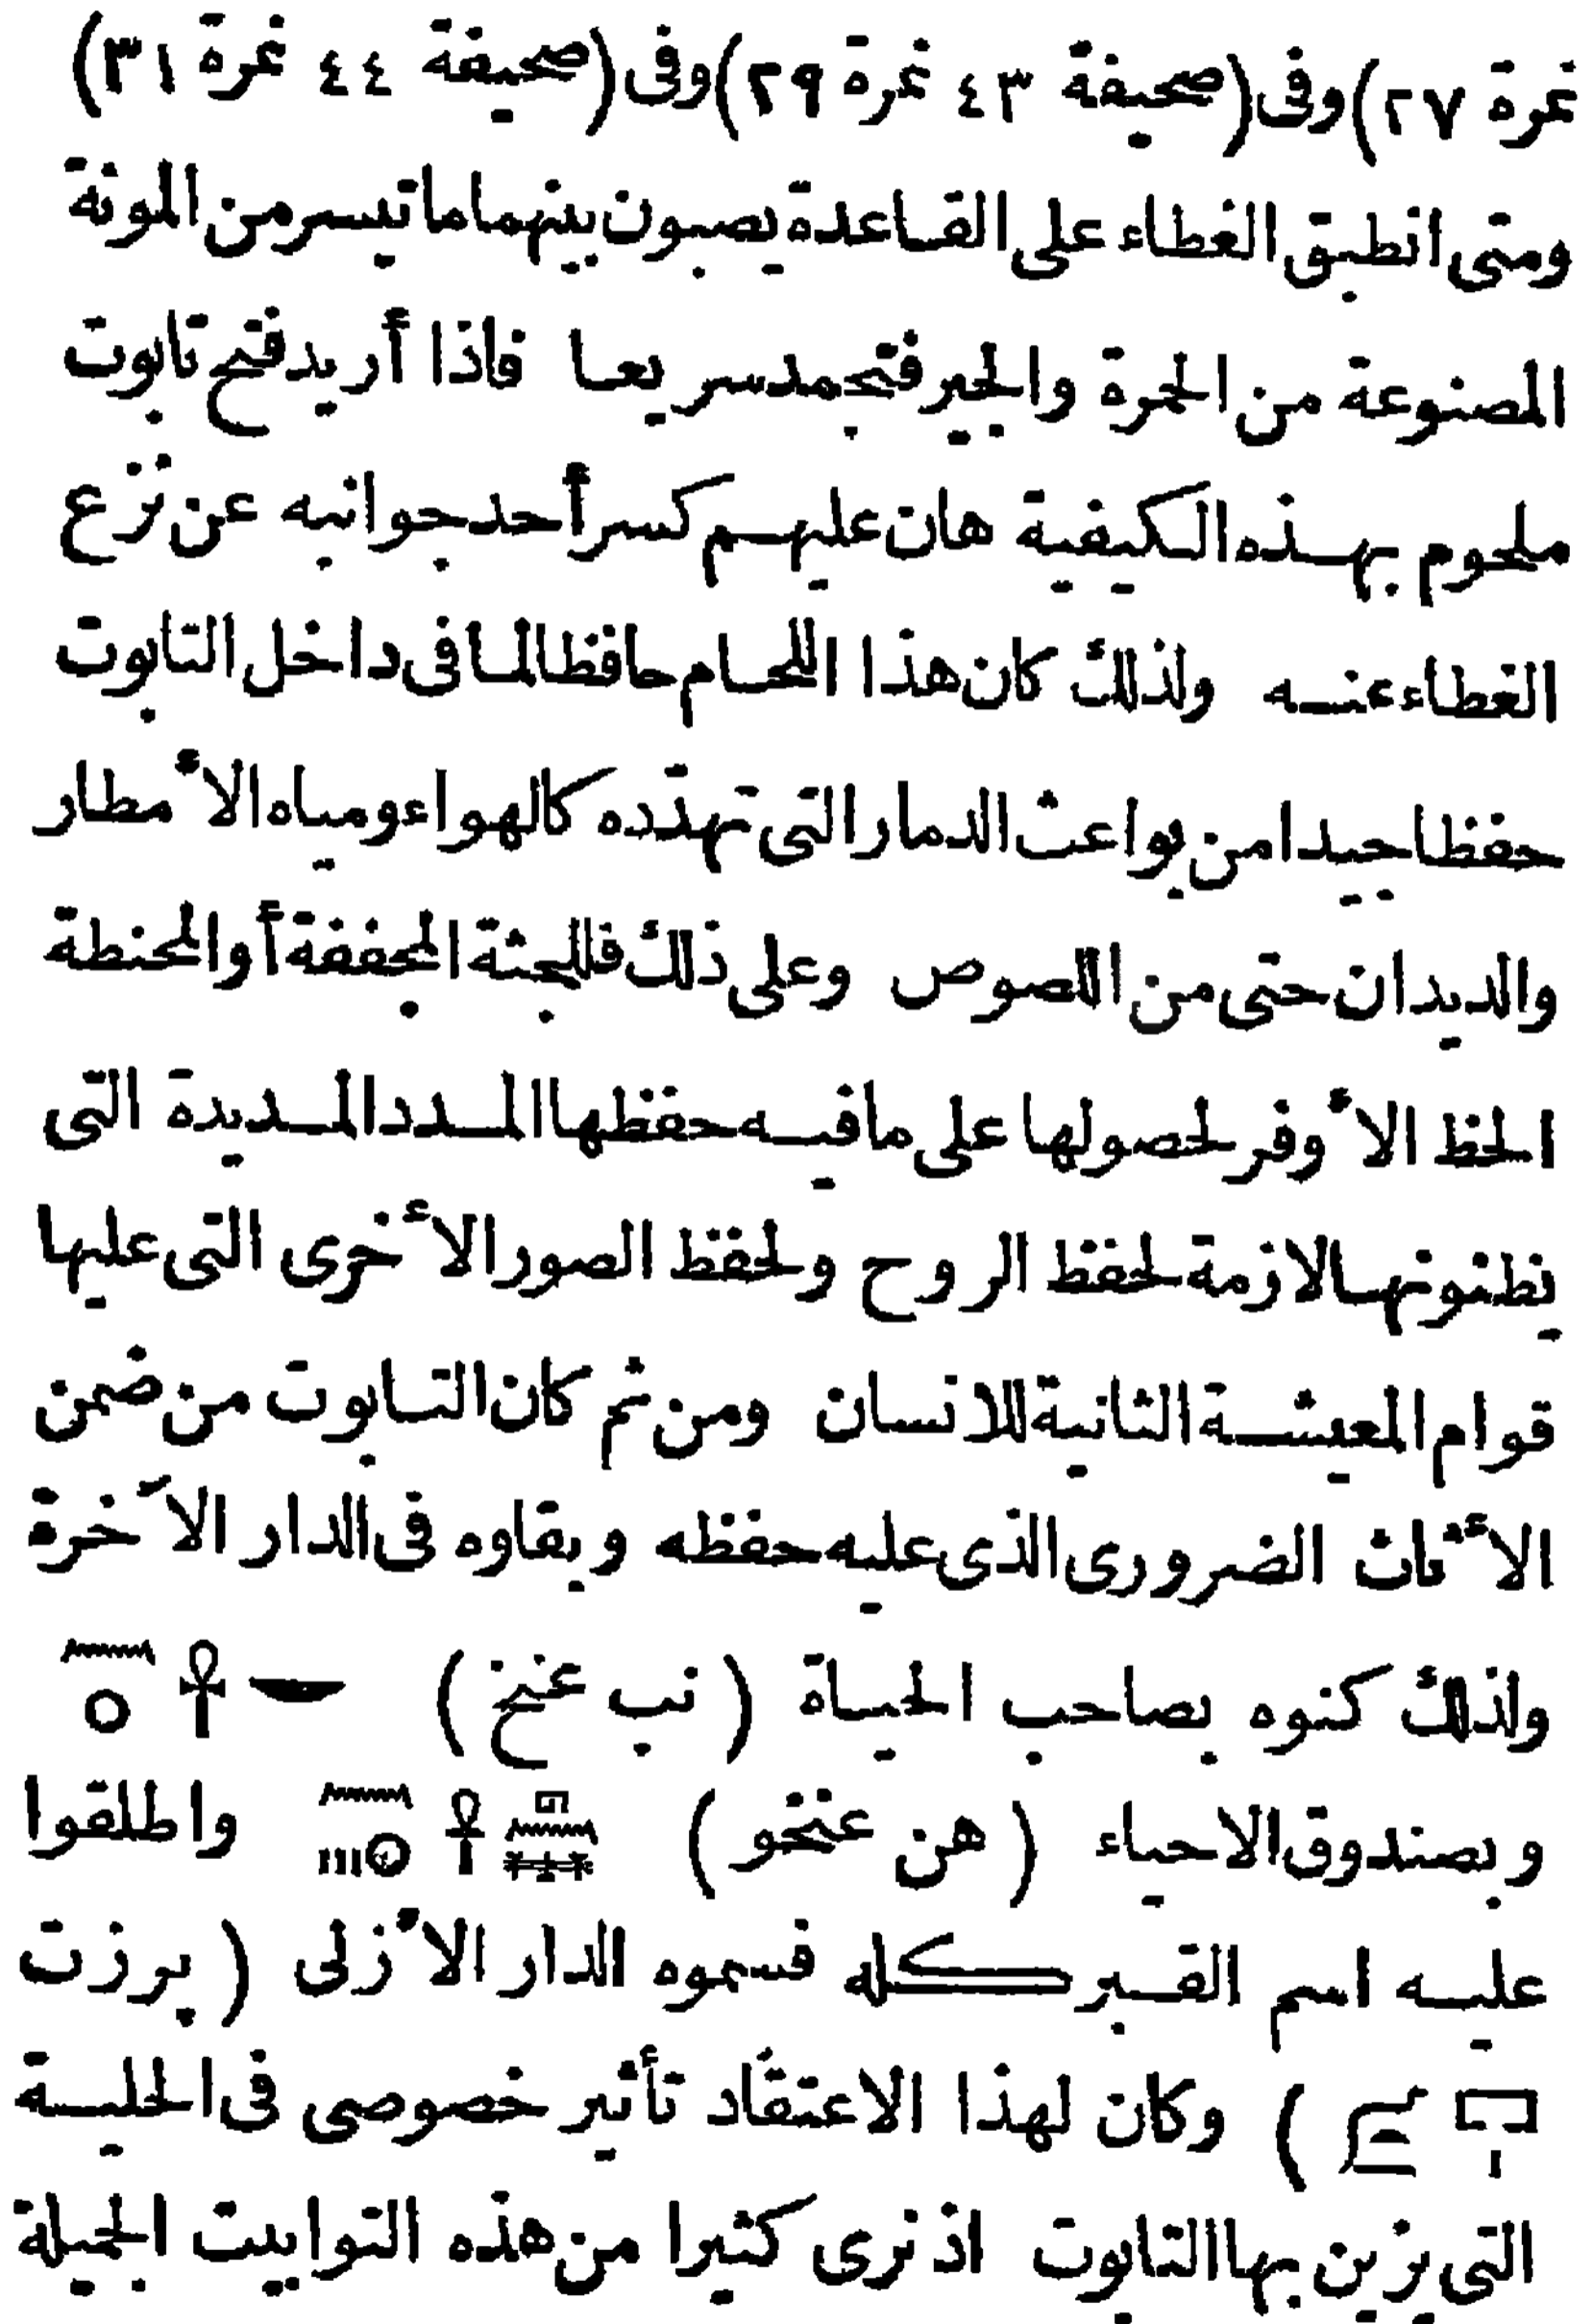 نمرة ٢٧) وفى (صحيفة ٤٣ نمرة ٢٩) وفى (صحيفة ٤٤ نمرة ٣١)
ومتى انطبق الغطاء على القاعدة يصبون بينهما ما تيسر من المونة
المصنوعة من الحمرة والجير فتجمد سريعا فاذا أريد فتح تابوت
ملحوم بهذه الكيفية هان عليهم كسر أحد جوانبه عن نزع
الغطاء عنه ولذلك كان هذا اللحام حافظا لما فى داخل التابوت
حفظا جيدا من بواعث الدمار التى تهدّده كالهواء ومياه الأمطار
والديدان حتى من اللصوص وعلى ذلك فللجثة المجففة أو المحنطة
الحظ الأوفر لحصولها على ما فيه حفظها المدد المديدة التى
يظنونها لازمة لحفظ الروح ولحفظ الصور الأخرى التى عليها
قوام المعيشة الثانية للانسان ومن ثم كان التابوت من ضمن
الأثاث الضرورى الذى عليه حفظه وبقاوه فى الدار الآخرة
ولذلك كنوه بصاحب الحياة (نب عنخ) 𓎟 𓋹 𓈖 𓐍
وبصندوق الاحياء (هن عنخو) 𓉔 𓈖 𓋹 𓈖 𓐍 𓏥 واطلقوا
عليه اسم القبر كله فسموه الدار الأزلى (بر زت
𓉐 𓏤 𓆓 𓏏 𓇿) وكان لهذا الاعتقاد تأثير خصوصى فى الحلية
التى يزين بها التابوت اذ نرى كثيرا من هذه التوابيت الجميلة